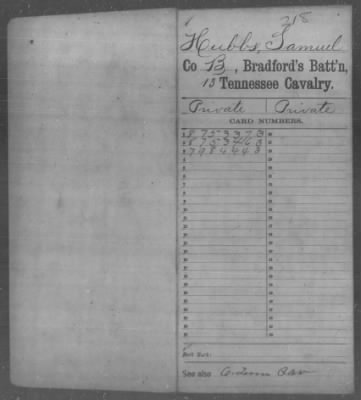 218
Hubbs, Samuel
Co B, Bradford's Batt'n,
13 Tennessee Cavalry.
Private Private
CARD NUMBERS.
8753373
8753463
7984443
Book Mark:
See also